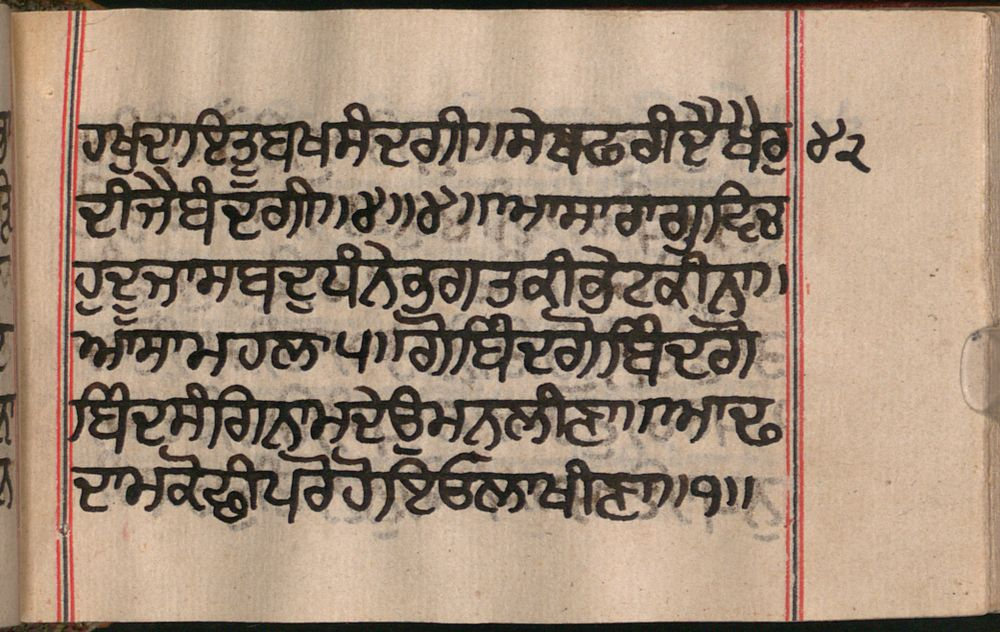 ਹਖੁਦਾਇਤੂਬਖਸੰਦਗੀ॥ਸੇਖਫਰੀਦੈਖੈਰੁ ੪੨
ਦੀਜੈਬੰਦਗੀ॥੪॥੪॥ਆਸਾਰਾਗੁਵਿਚ
ਹੁਦੂਜਾਸਬਦੁਧੰਨੇਭਗਤਕੀਭੇਟਕੀਨਾ॥
ਆਸਾਮਹਲਾ੫॥ਗੋਬਿੰਦਗੋਬਿੰਦਗੋ
ਬਿੰਦਸੰਗਿਨਾਮਦੇਉਮਨਲੀਣਾ॥ਆਢ
ਦਾਮਕੋਛੀਪਰੋਹੋਇਓਲਾਖੀਣਾ॥੧॥